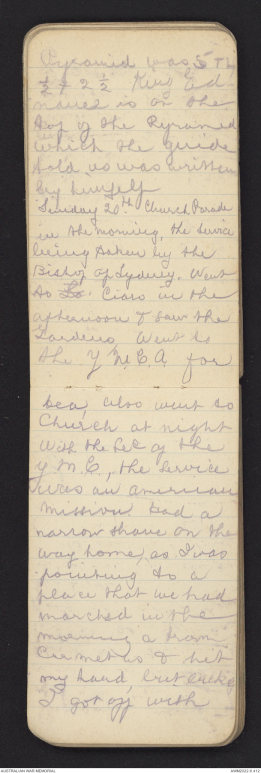 Pyramid was 5 ft
1/2 & 2 1/2 King Ed
names is on the
top of the Pyramid
which the guide
told us was written
by himself
Sunday 20th Church Parade
in the morning, the service
being taken by the
Bishop of Sydney. Went
to Cairo in the
afternoon & saw the
Gardens Went to
the Y M.C.A for
tea, also went to
Church at night
with the Sec of the
Y M.C., the service
was an american
mission had a
narrow shave on the
way home, as I was
pointing to a
place that we had
marched in the
morning a tram
Cu met us & hit
my hand, but
I got off with
AUSTRALIAN WAR MEMORIAL